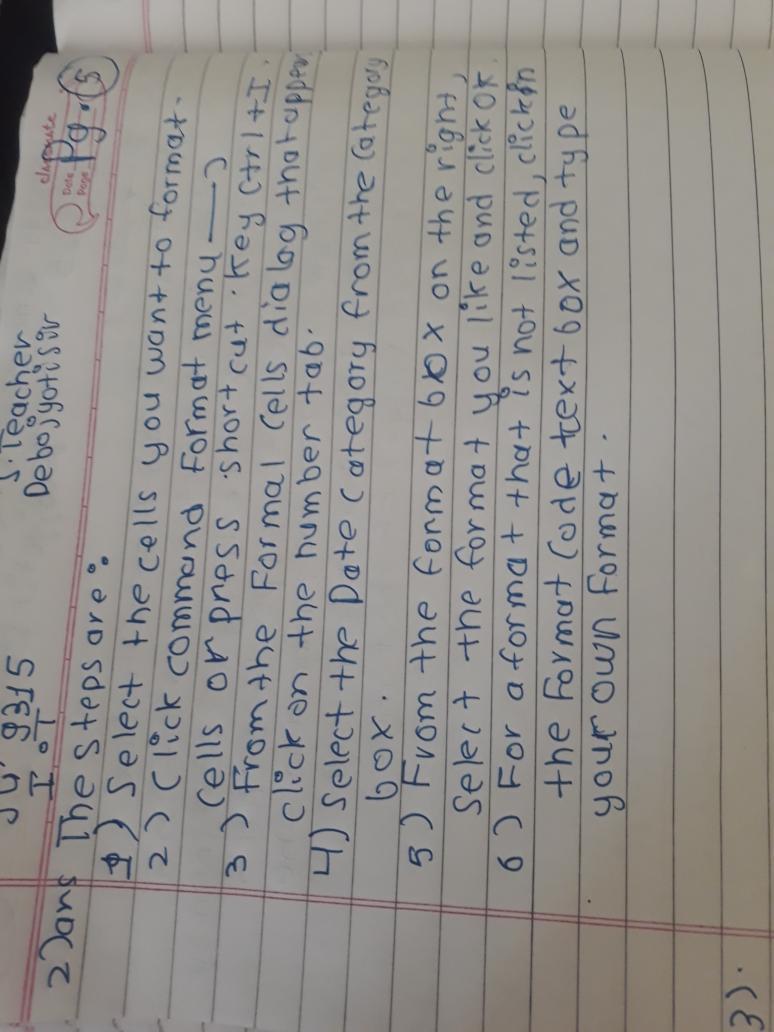 S. Teacher
9315 Debojyoti Sir
I.T
classmate
Date
Page Pg. 5
2) ans The steps are:
1) Select the cells you want to format.
2) Click command format menu →
Cells or press shortcut key Ctrl+I.
3) From the Formal Cells dialog that appears
click on the number tab.
4) Select the Date category from the category
box.
5) From the format box on the right,
Select the format you like and click OK.
6) For a format that is not listed, click in
the format code text box and type
your own format.
3).